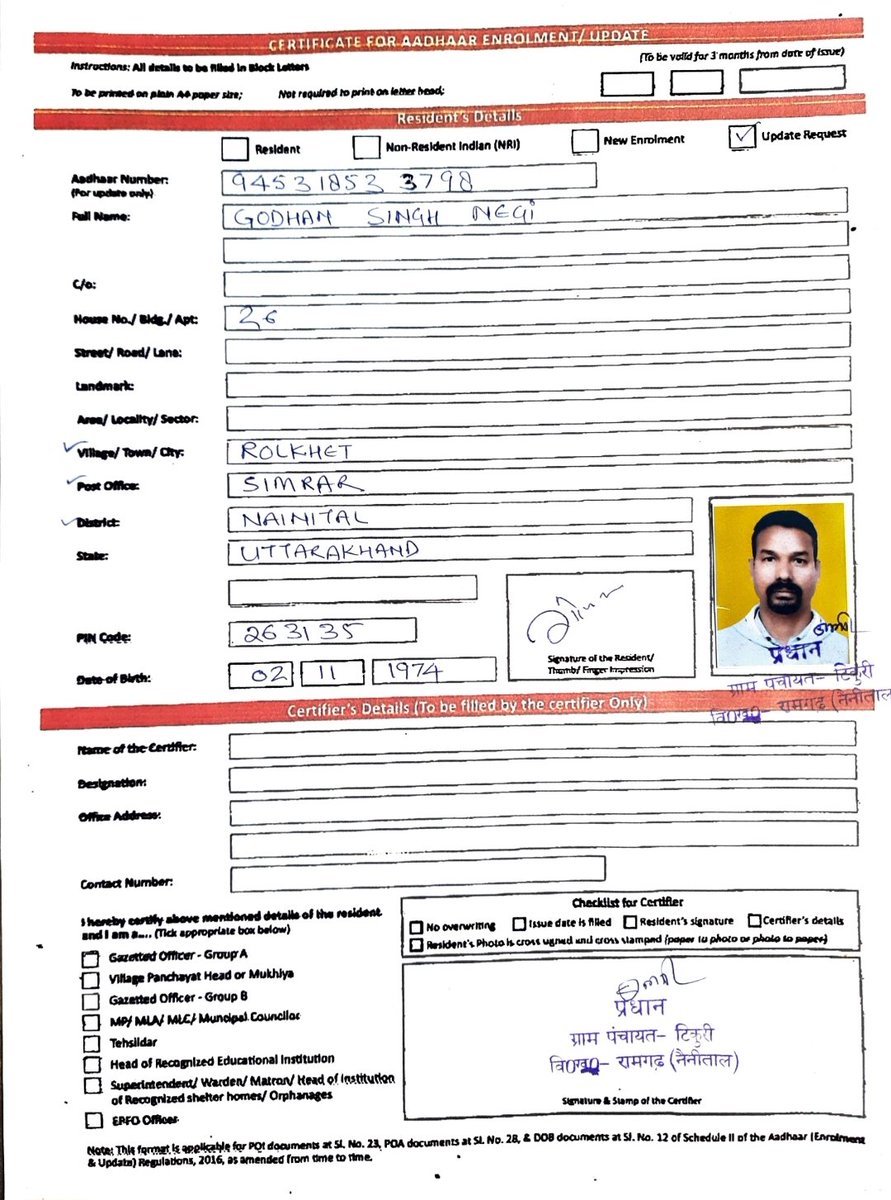 CERTIFICATE FOR AADHAAR ENROLMENT/ UPDATE
Instructions: All details to be filled in Block Letters
(To be valid for 3 months from date of issue)
To be printed on plain A4 paper size; Not required to print on letter head;
Resident's Details
Resident Non-Resident Indian (NRI) New Enrolment Update Request
Aadhaar Number: 94531853 3798
(For update only)
Full Name: GODHAN SINGH NEGi
C/o:
House No./ Bldg./ Apt: 26
Street/ Road/ Lane:
Landmark:
Area/ Locality/ Sector:
Village/ Town/ City: ROLKHET
Post Office: SIMRAR
District: NAINITAL
State: UTTARAKHAND
PIN Code: 263135
Signature of the Resident/
Thumb/ Finger Impression
Date of Birth: 02 11 1974
प्रधान
ग्राम पंचायत– टिकुरी
वि0ख0– रामगढ़ (नैनीताल)
Certifier's Details (To be filled by the certifier Only)
Name of the Certifier:
Designation:
Office Address:
Contact Number:
I hereby certify above mentioned details of the resident
and I am a.... (Tick appropriate box below)
Gazetted Officer - Group A
Village Panchayat Head or Mukhiya
Gazetted Officer - Group B
MP/ MLA/ MLC/ Muncipal Councilor
Tehsildar
Head of Recognized Educational Institution
Superintendent/ Warden/ Matron/ Head of Institution
of Recognized shelter homes/ Orphanages
EPFO Officer
Checklist for Certifier
No overwriting Issue date is filled Resident's signature Certifier's details
Resident's Photo is cross signed and cross stamped (paper to photo or photo to paper)
प्रधान
ग्राम पंचायत– टिकुरी
वि0ख0– रामगढ़ (नैनीताल)
Signature & Stamp of the Certifier
Note: This format is applicable for POI documents at Sl. No. 23, POA documents at Sl. No. 28, & DOB documents at Sl. No. 12 of Schedule II of the Aadhaar (Enrolment
& Update) Regulations, 2016, as amended from time to time.